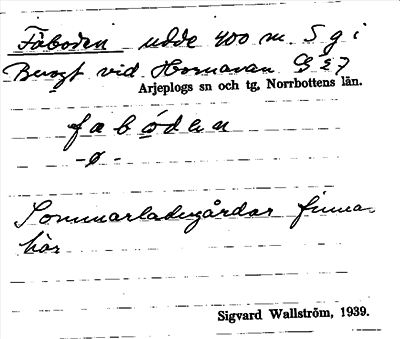 Fäboden udde 400 m S g i
vid Hornavan
Arjeplogs sn och tg, Norrbottens län.
fäboden
-ø-
Sommarladugårdar finna
här
Sigvard Wallström, 1939.